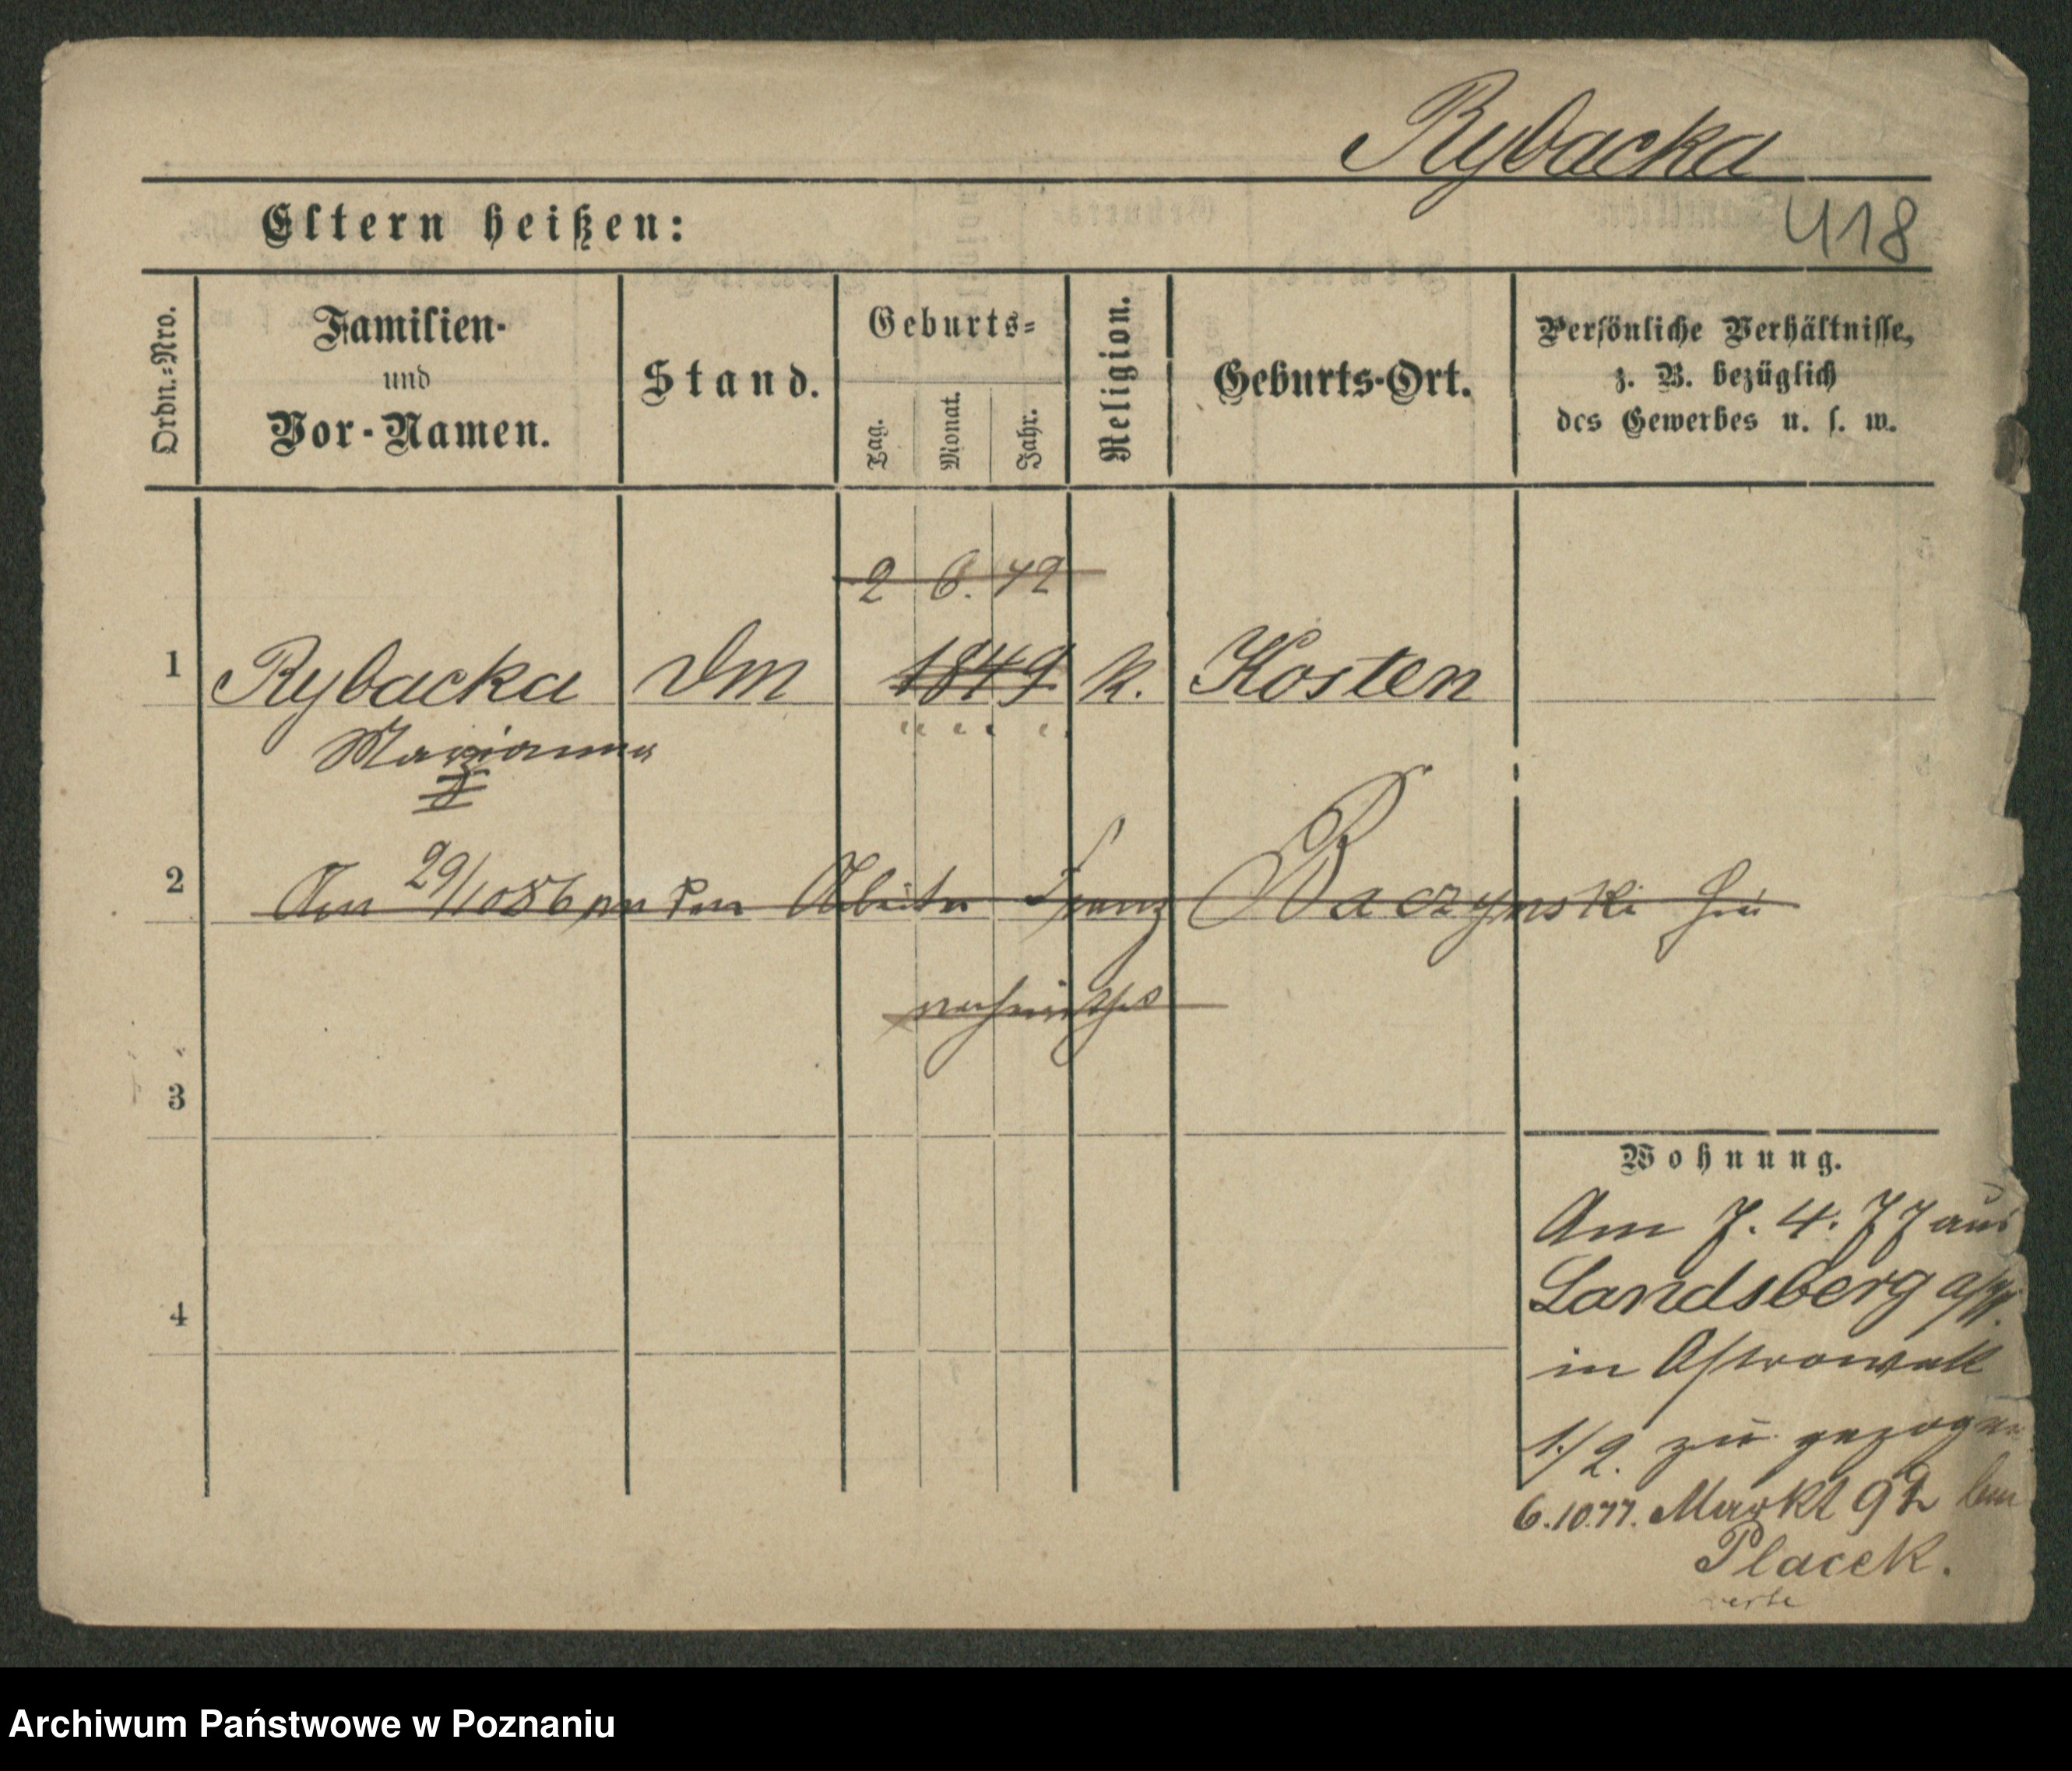 Rybacka
418
Eltern heißen:
Ordn.-Nro.
Familien-
und
Vor-Namen.
Stand.
Geburts-
Tag.
Monat.
Jahr.
Religion.
Geburts-Ort.
Persönliche Verhältnisse,
z. B. bezüglich
des Gewerbes u. s. w.
2 6. 42
1 Rybacka Dm 1849 k. Kosten
Marianna
2 Am 29/10 86 an den Arbeiter Franz Raczynski hier
verheirathet
3
4
Wohnung.
Am 7. 4. 77 aus
Landsberg a/W.
in Ostrowek
1/2. zu gezogen
6.10.77. Markt 92 bei
Placek.
Archiwum Państwowe w Poznaniu